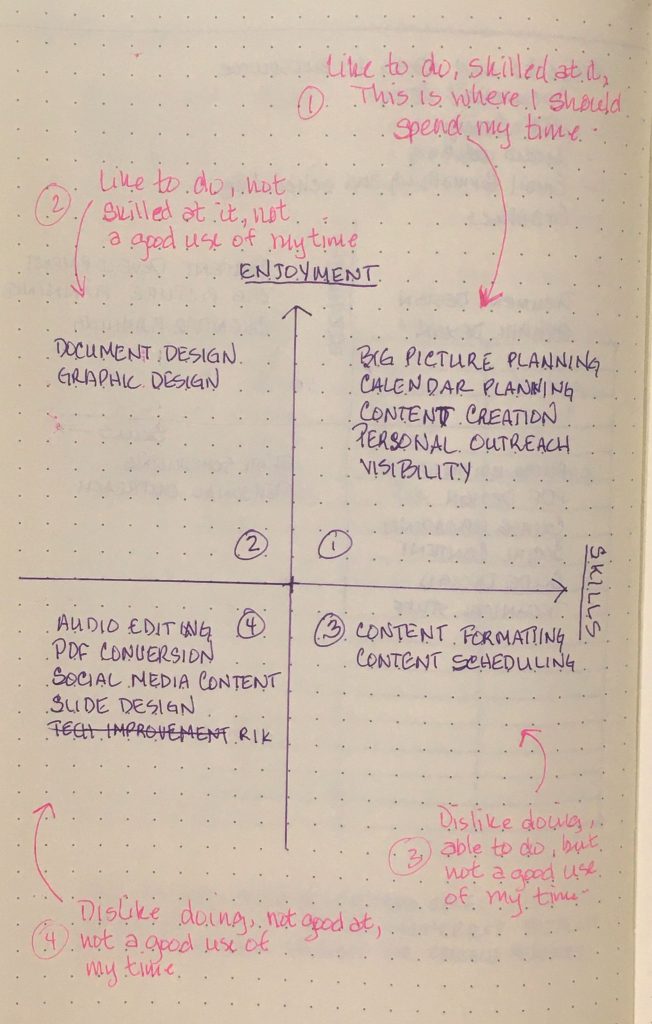 Like to do, skilled at it,
① This is where I should
spend my time.
Like to do, not
② skilled at it, not
a good use of my time
ENJOYMENT
DOCUMENT DESIGN
GRAPHIC DESIGN
BIG PICTURE PLANNING
CALENDAR PLANNING
CONTENT CREATION
PERSONAL OUTREACH
VISIBILITY
②
①
SKILLS
AUDIO EDITING
④
PDF CONVERSION
SOCIAL MEDIA CONTENT
SLIDE DESIGN
TECH IMPROVEMENT RIK
③ CONTENT FORMATTING
CONTENT SCHEDULING
Dislike doing,
③ able to do, but
not a good use
of my time.
Dislike doing, not good at,
④ not a good use of
my time.